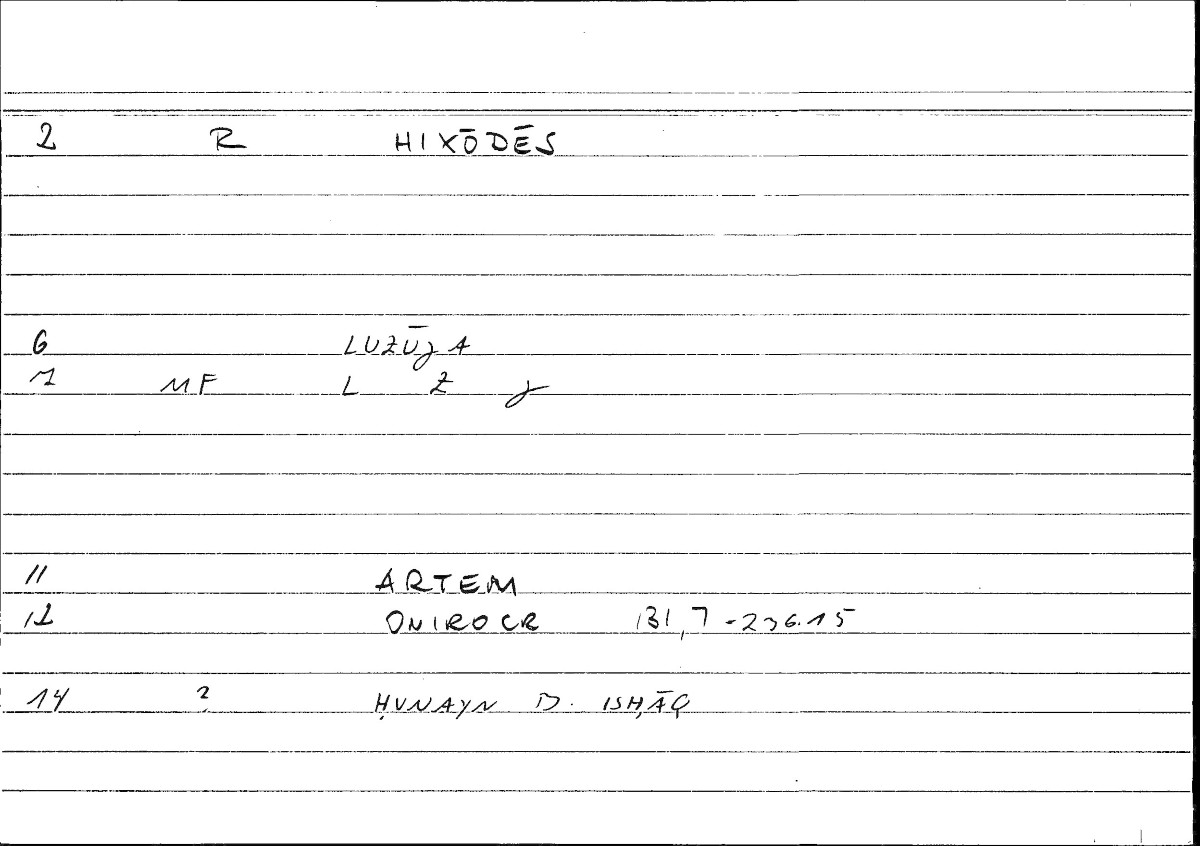 2 R HIXŌDĒS
6 LUZŪJA
7 MF L Z J
11 ARTEM
12 ONIROCR 131,7-236.15
14 ? ḤUNAYN B. ISḤĀQ